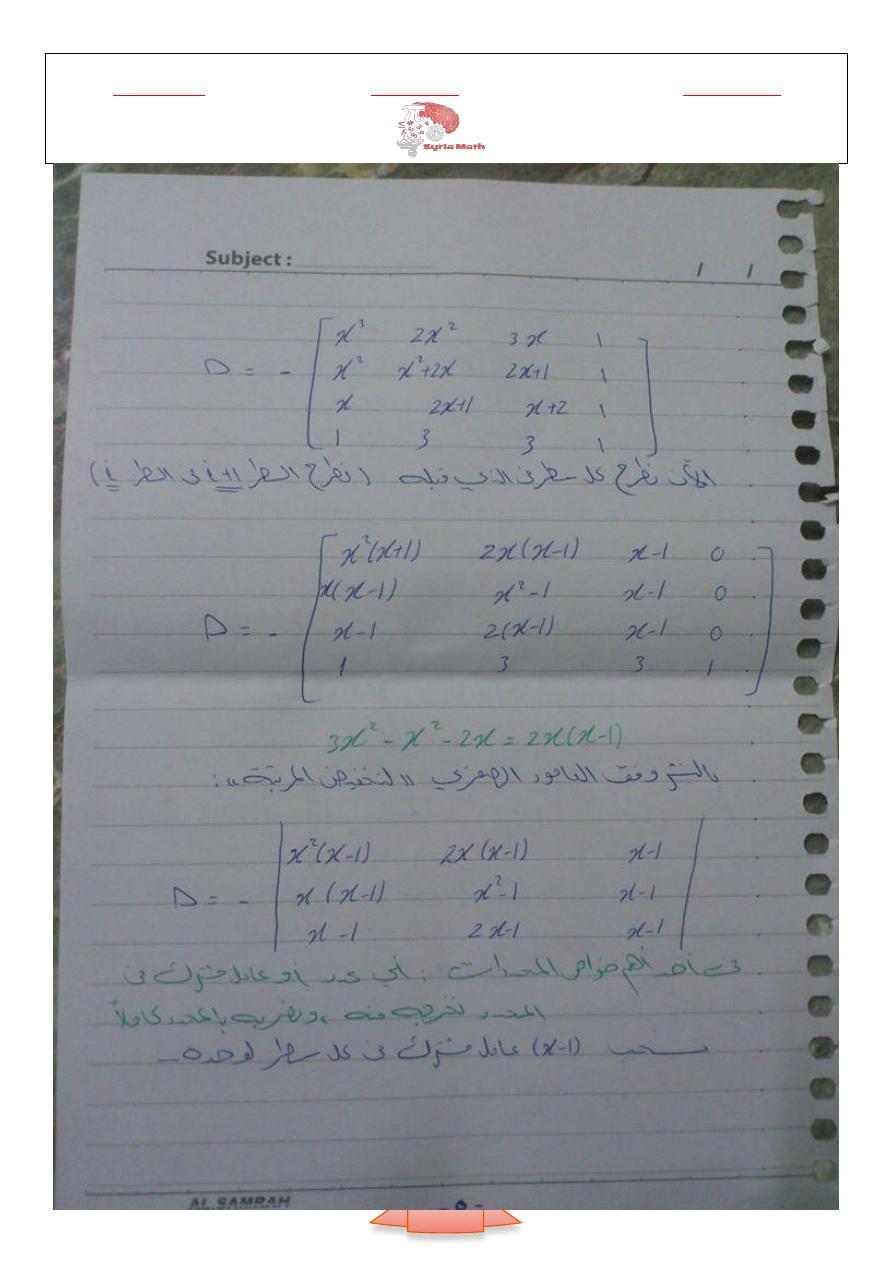 Syria Math
Subject :
/ /
x³ 2x² 3x 1
D = - x² x²+2x 2x+1 1
x 2x+1 x+2 1
1 3 3 1
الآن نطرح كل سطر من الذي قبله (نطرح السطر i+1 من السطر i)
x²(x+1) 2x(x-1) x-1 0
x(x-1) x²-1 x-1 0
D = - x-1 2(x-1) x-1 0
1 3 3 1
3x² - x² - 2x = 2x(x-1)
بالنشر وفق العامود الصفري "لتخفيض المرتبة":
x²(x-1) 2x(x-1) x-1
D = - x(x-1) x²-1 x-1
x-1 2x-1 x-1
من أحد أهم خواص المحددات : أي عدد أو عامل مشترك في
المحدد نخرجه منه، ونضربه بالمحدد كاملاً
نسحب (x-1) عامل مشترك من كل سطر لوحده
AL SAMRAH
- 5 -